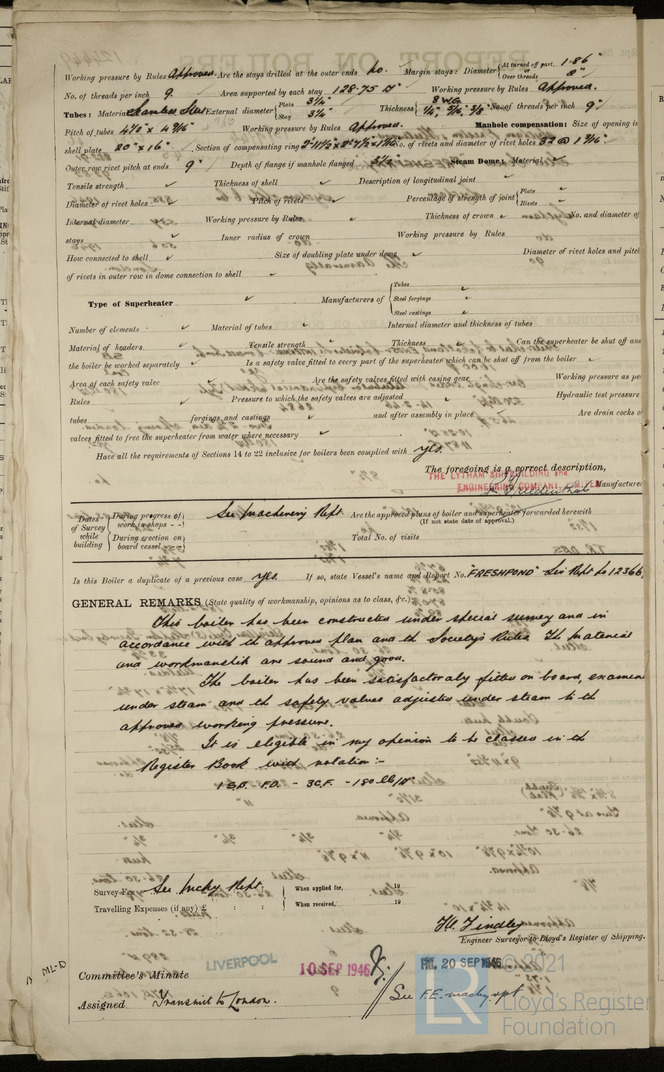 Working pressure by Rules Approved. Are the stays drilled at the outer ends No. Margin stays: Diameter { At turned off part, 1.86" Over threads 2"
No. of threads per inch 9. Area supported by each stay 128.75 □" Working pressure by Rules Approved.
Tubes: Material Seamless Steel External diameter { Plain 3¼" Stay 3¼" Thickness { 8 W.G. ¼", 5/16, 3/8" No. of threads per inch 9"
Pitch of tubes 4½" x 4 7/16" Working pressure by Rules Approved. Manhole compensation: Size of opening in
shell plate 20" x 16" Section of compensating ring No. of rivets and diameter of rivet holes 32 @ 1 3/16"
Outer row rivet pitch at ends 9" Depth of flange if manhole flanged 3½" Steam Dome: Material ✓
Tensile strength ✓ Thickness of shell ✓ Description of longitudinal joint ✓
Diameter of rivet holes Pitch of rivets ✓ Percentage of strength of joint { Plate ✓ Rivets ✓
Internal diameter ✓ Working pressure by Rules ✓ Thickness of crown ✓ No. and diameter of
stays ✓ Inner radius of crown ✓ Working pressure by Rules ✓
How connected to shell ✓ Size of doubling plate under dome ✓ Diameter of rivet holes and pitch
of rivets in outer row in dome connection to shell ✓
Type of Superheater ✓ Manufacturers of { Tubes ✓ Steel forgings ✓ Steel castings ✓
Number of elements ✓ Material of tubes ✓ Internal diameter and thickness of tubes
Material of headers ✓ Tensile strength ✓ Thickness ✓ Can the superheater be shut off and
the boiler be worked separately ✓ Is a safety valve fitted to every part of the superheater which can be shut off from the boiler ✓
Area of each safety valve ✓ Are the safety valves fitted with easing gear ✓ Working pressure as per
Rules ✓ Pressure to which the safety valves are adjusted ✓ Hydraulic test pressure
tubes ✓ forgings and castings ✓ and after assembly in place ✓ Are drain cocks or
valves fitted to free the superheater from water where necessary ✓
Have all the requirements of Sections 14 to 22 inclusive for boilers been complied with yes.
The foregoing is a correct description,
THE LYTHAM SHIPBUILDING AND
ENGINEERING COMPANY, LTD. Manufacturer
Dates of Survey while building { During progress of work in shops - - } See Machinery Rept. Are the approved plans of boiler and superheater forwarded herewith
(If not state date of approval.)
{ During erection on board vessel - - - } Total No. of visits
Is this Boiler a duplicate of a previous case yes. If so, state Vessel's name and Report No. "FRESHPOND" Liv Rept No 12366,
GENERAL REMARKS (State quality of workmanship, opinions as to class, &c.)
This boiler has been constructed under special survey and in
accordance with the approved plan and the Society's Rules. The material
and workmanship are sound and good.
The boiler has been satisfactorily fitted on board, examined
under steam and the safety valves adjusted under steam to the
approved working pressure.
It is eligible in my opinion to be classed in the
Register Book with notation:-
1 S.B. F.D. - 3 C.F. - 180 lb/□"
Survey Fee See Mchy Rept. { When applied for, 19
Travelling Expenses (if any) £ : : { When received, 19
Engineer Surveyor to Lloyd's Register of Shipping.
Committee's Minute LIVERPOOL 10 SEP 1946 FRI. 20 SEP 1946
Assigned Transmit to London. See F.E. machy rpt
© 2021
LR Lloyd's Register
Foundation